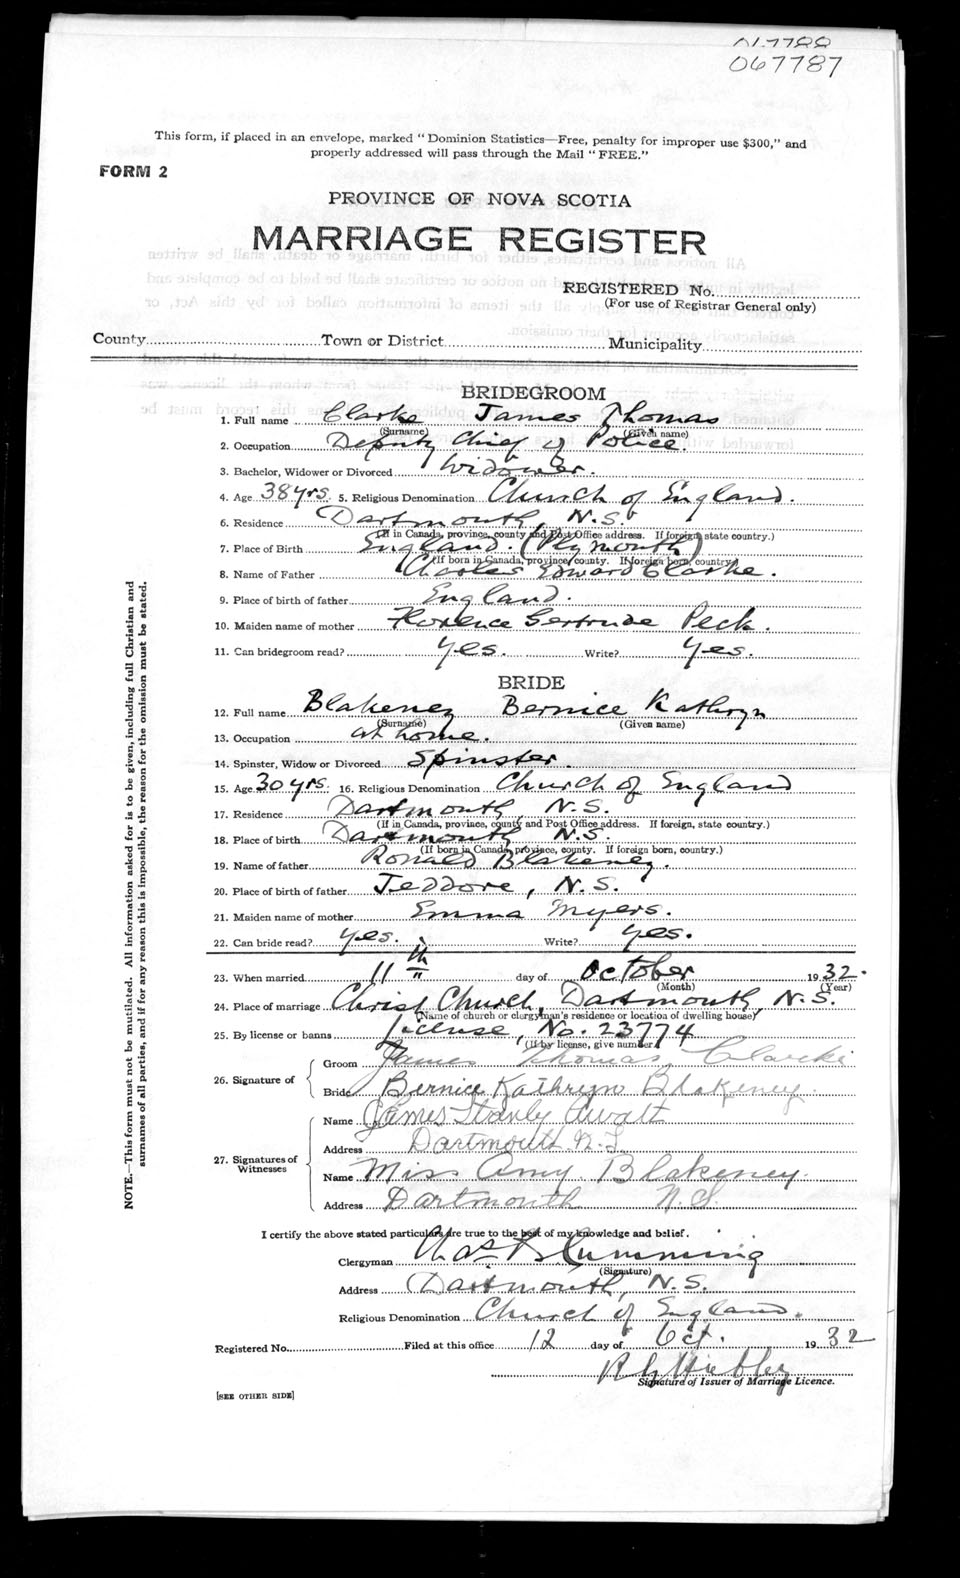 067787
This form, if placed in an envelope, marked "Dominion Statistics—Free, penalty for improper use $300," and
properly addressed will pass through the Mail "FREE."
FORM 2
PROVINCE OF NOVA SCOTIA
MARRIAGE REGISTER
REGISTERED No.
(For use of Registrar General only)
County Town or District Municipality
BRIDEGROOM
1. Full name Clarke James Thomas
(Surname) (Given name)
2. Occupation Deputy Chief of Police.
3. Bachelor, Widower or Divorced Widower.
4. Age 38 yrs. 5. Religious Denomination Church of England.
6. Residence Dartmouth, N.S.
(If in Canada, province, county and Post Office address. If foreign, state country.)
7. Place of Birth England. (Plymouth)
(If born in Canada, province, county. If foreign born, country.)
8. Name of Father Charles Edward Clarke.
9. Place of birth of father England.
10. Maiden name of mother Florence Gertrude Peck.
11. Can bridegroom read? Yes. Write? Yes.
BRIDE
12. Full name Blakeney Bernice Kathryn
(Surname) (Given name)
13. Occupation at home.
14. Spinster, Widow or Divorced Spinster.
15. Age 30 yrs. 16. Religious Denomination Church of England
17. Residence Dartmouth, N.S.
(If in Canada, province, county and Post Office address. If foreign, state country.)
18. Place of birth Dartmouth N.S.
(If born in Canada, province, county. If foreign born, country.)
19. Name of father Ronald Blakeney.
20. Place of birth of father Jeddore, N.S.
21. Maiden name of mother Emma Myers.
22. Can bride read? Yes. Write? Yes.
23. When married 11th day of October 1932.
(Month) (Year)
24. Place of marriage Christ Church, Dartmouth, N.S.
(Name of church or clergyman's residence or location of dwelling house)
25. By license or banns License, No. 23774
(If by license, give number)
26. Signature of
Groom James Thomas Clarke
Bride Bernice Kathryn Blakeney.
27. Signatures of Witnesses
Name James Stanly Awalt
Address Dartmouth N.S
Name Miss Amy Blakeney.
Address Dartmouth N.S.
I certify the above stated particulars are true to the best of my knowledge and belief.
Clergyman Chas Cumming
(Signature)
Address Dartmouth, N.S.
Religious Denomination Church of England.
Registered No. Filed at this office 12 day of Oct. 1932
Signature of Issuer of Marriage Licence.
[SEE OTHER SIDE]
NOTE.—This form must not be mutilated. All information asked for is to be given, including full Christian and
surnames of all parties, and if for any reason this is impossible, the reason for the omission must be stated.